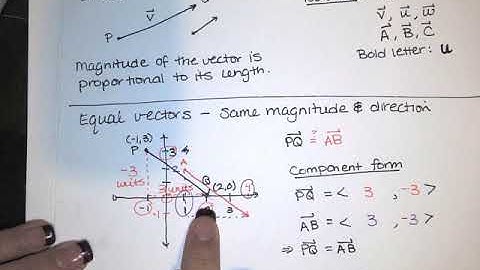 V
P
V, u, w
A, B, C
Bold letter: u
magnitude of the vector is
proportional to its length.
Equal vectors – same magnitude & direction
(-1,3)
P
3
A
2
-3
units
3 units
B
(2,0)
-1
1
3
4
-1
PQ ?= AB
Component form
PQ = < 3, -3 >
AB = < 3, -3 >
⇒ PQ = AB